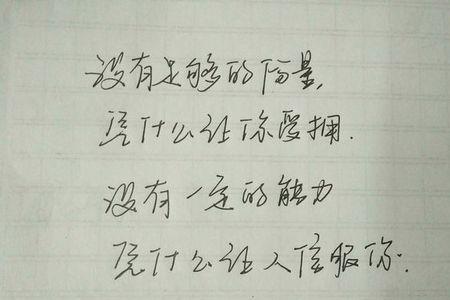 没有足够的景,
凭什么让你受拥.
没有一定的能力
凭什么让人信服你.